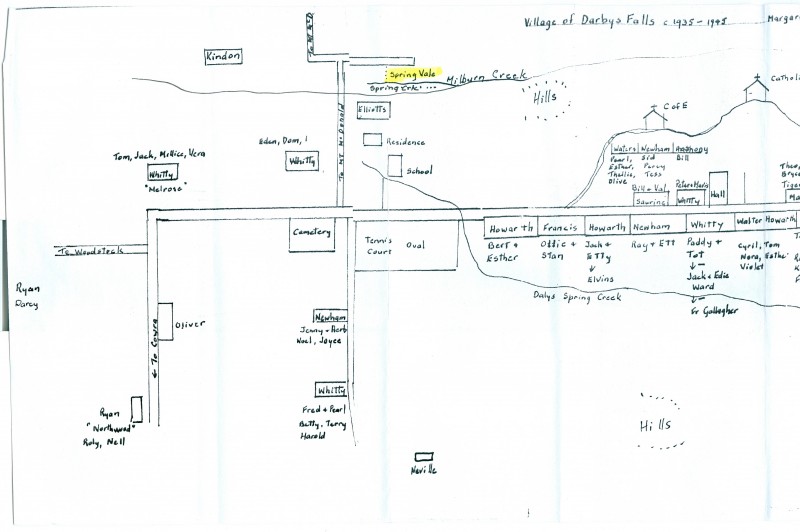 Village of Darbys Falls c 1935-1945
Margar
Kindon
Spring Vale
Milburn Creek
Spring Crk
Hills
Catholi
C of E
Elliotts
Residence
School
To Mt McDonald
Tom, Jack, Mollie, Vera
Whitty
"Melrose"
Eden, Dom,
Whitty
Waters Newham Anthony
Pearl, Sid Bill
Esther, Percy
Thellie, Tess
Olive
Bill + Val
Whitty
Hall
Theo,
Bryce
Tiger
Ma
Cemetery
Tennis
Court
Oval
Howarth Francis Howarth Newham Whitty Walter Howarth
Bert + Esther
Ottie + Stan
Jack + Etty
Elvins
Ray + Ett
Paddy + Tot
Jack + Edie
Ward
Fr Gallagher
Cyril, Tom
Nora, Esther
Violet
To Woodstock
Ryan
Darcy
Oliver
← To Cowra
Newham
Jenny + Herb
Noel, Joyce
Dalys Spring Creek
Whitty
Fred + Pearl
Betty, Terry
Harold
Ryan
"Northwood"
Roly, Nell
Neville
Hills